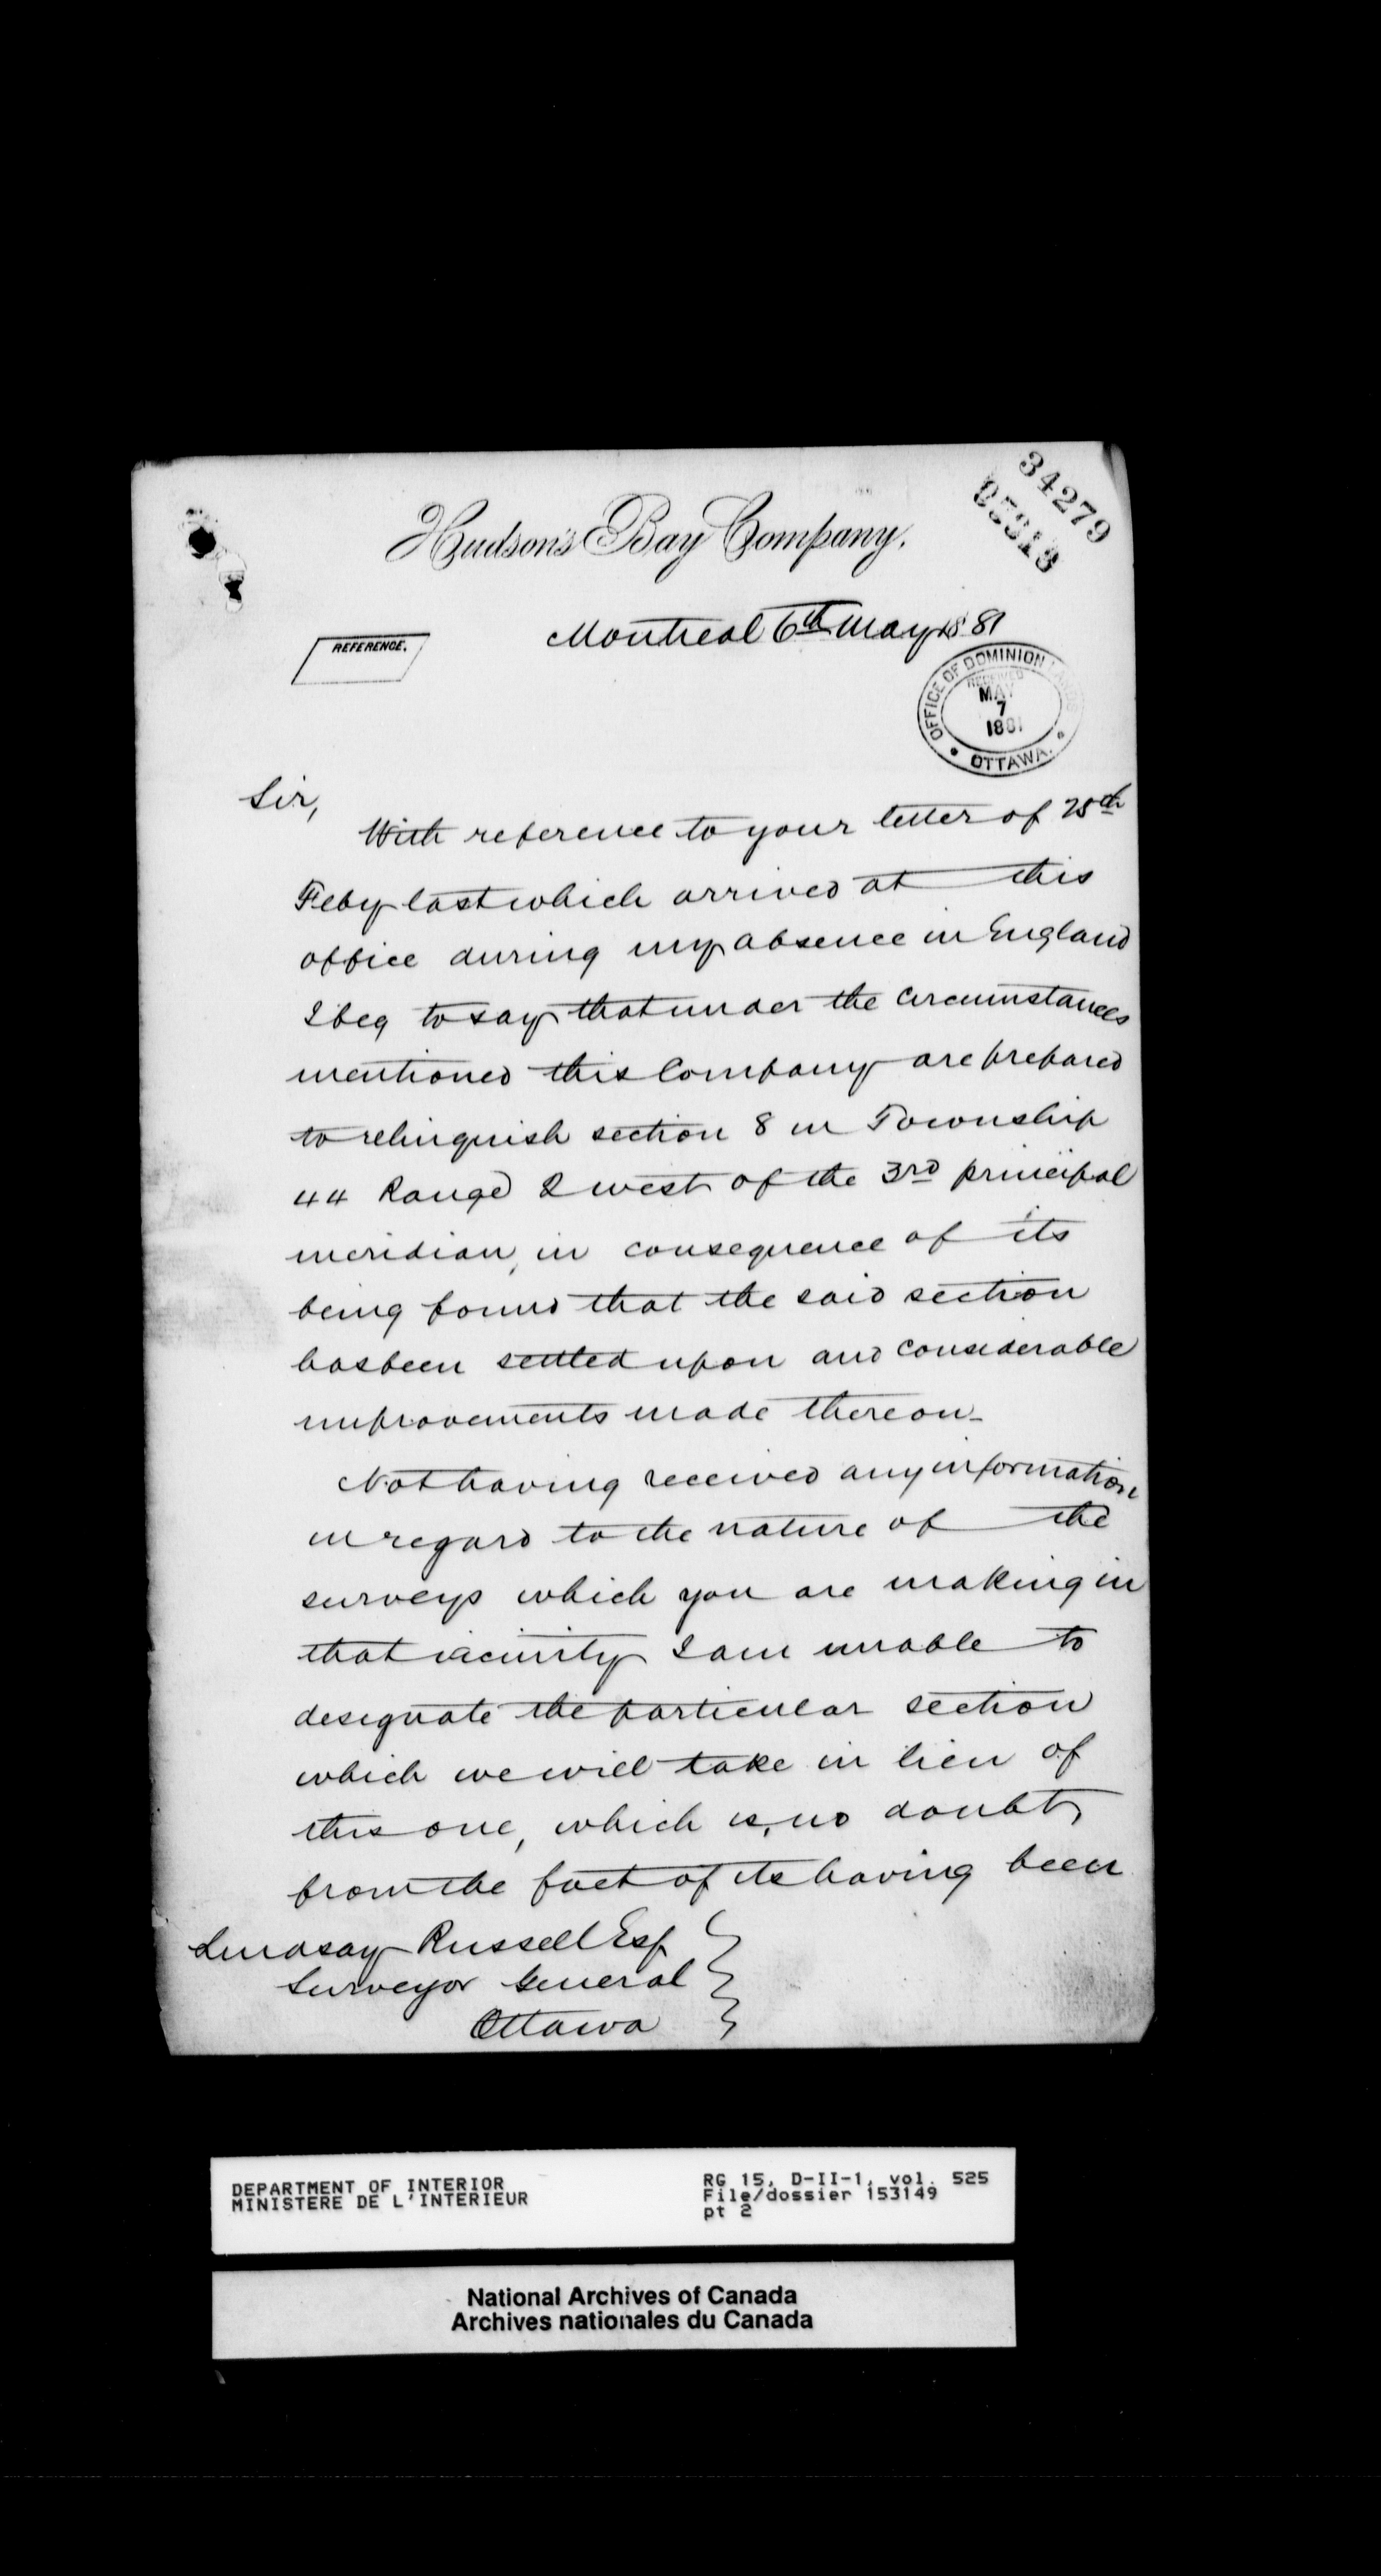 34279
95313
Hudson's Bay Company.
Montreal 6th May 1881
REFERENCE.
OFFICE OF DOMINION LANDS
RECEIVED
MAY
7
1881
OTTAWA.
Sir,
With reference to your letter of 25th
Feby last which arrived at this
office during my absence in England
I beg to say that under the circumstances
mentioned this Company are prepared
to relinquish section 8 in Township
44 Range 2 west of the 3rd principal
meridian, in consequence of its
being found that the said section
has been settled upon and considerable
improvements made thereon_
Not having received any information
in regard to the nature of the
surveys which you are making in
that vicinity I am unable to
designate the particular section
which we will take in lieu of
this one, which is, no doubt,
from the fact of its having been
Lindsay Russell Esq
Surveyor General
Ottawa
DEPARTMENT OF INTERIOR
MINISTERE DE L'INTERIEUR
RG 15, D-II-1, vol. 525
File/dossier 153149
pt 2
National Archives of Canada
Archives nationales du Canada